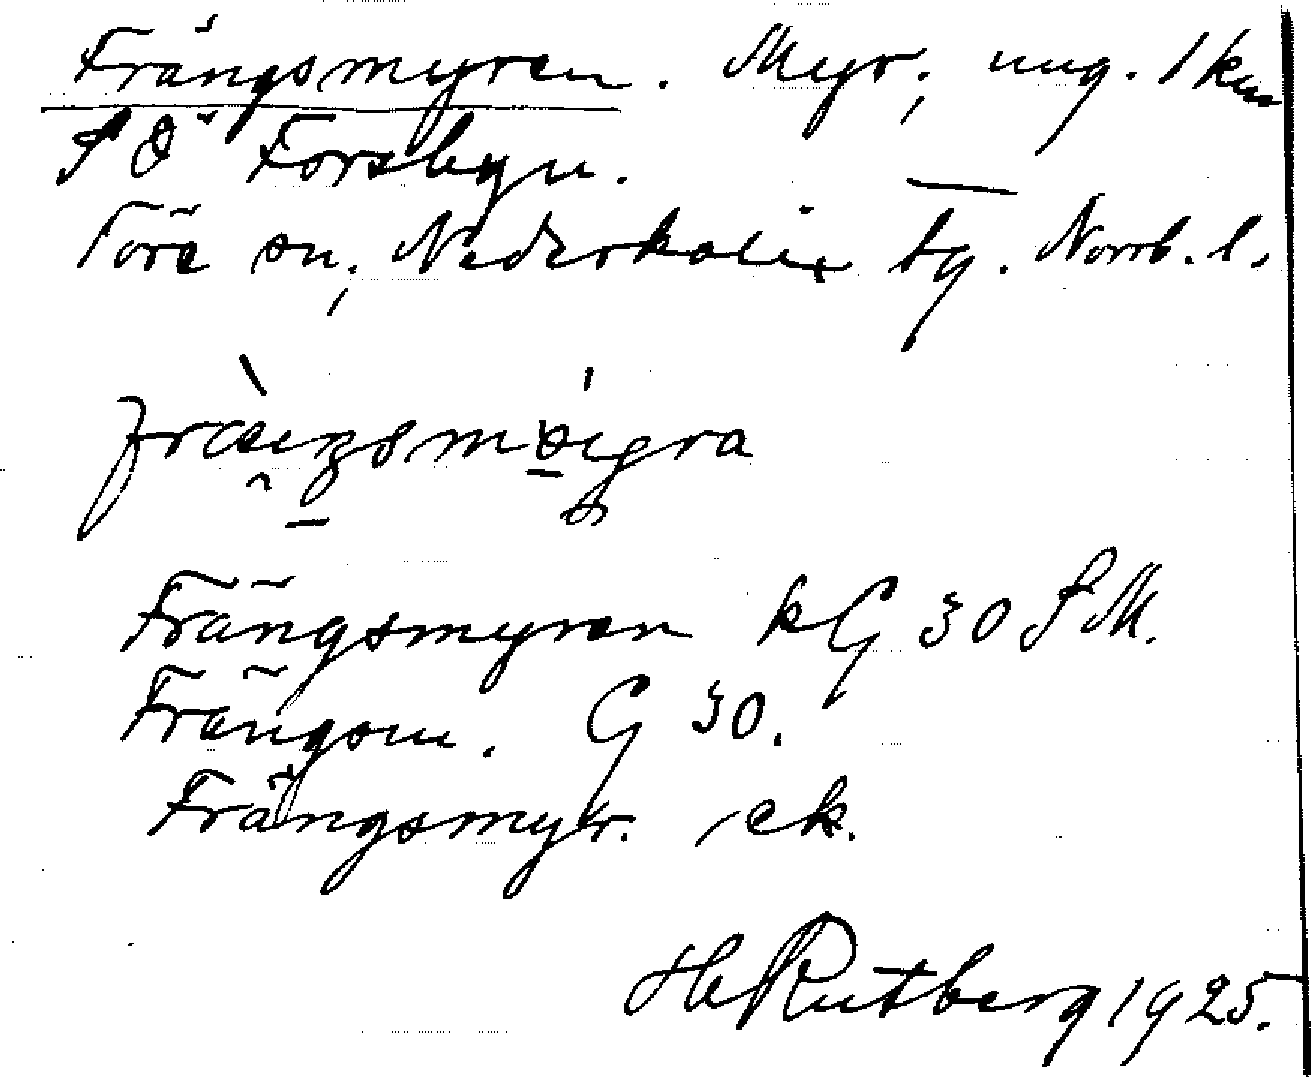 Frängsmyren. Myr, ung. 1 km
SÖ Forsbyn.
Töre sn, Nederkalix tg. Norrb. l.
Frängsmyren kG 30 SM.
Frängsm. G 30.
Frängsmyr. ek.
H Rutberg 1925.